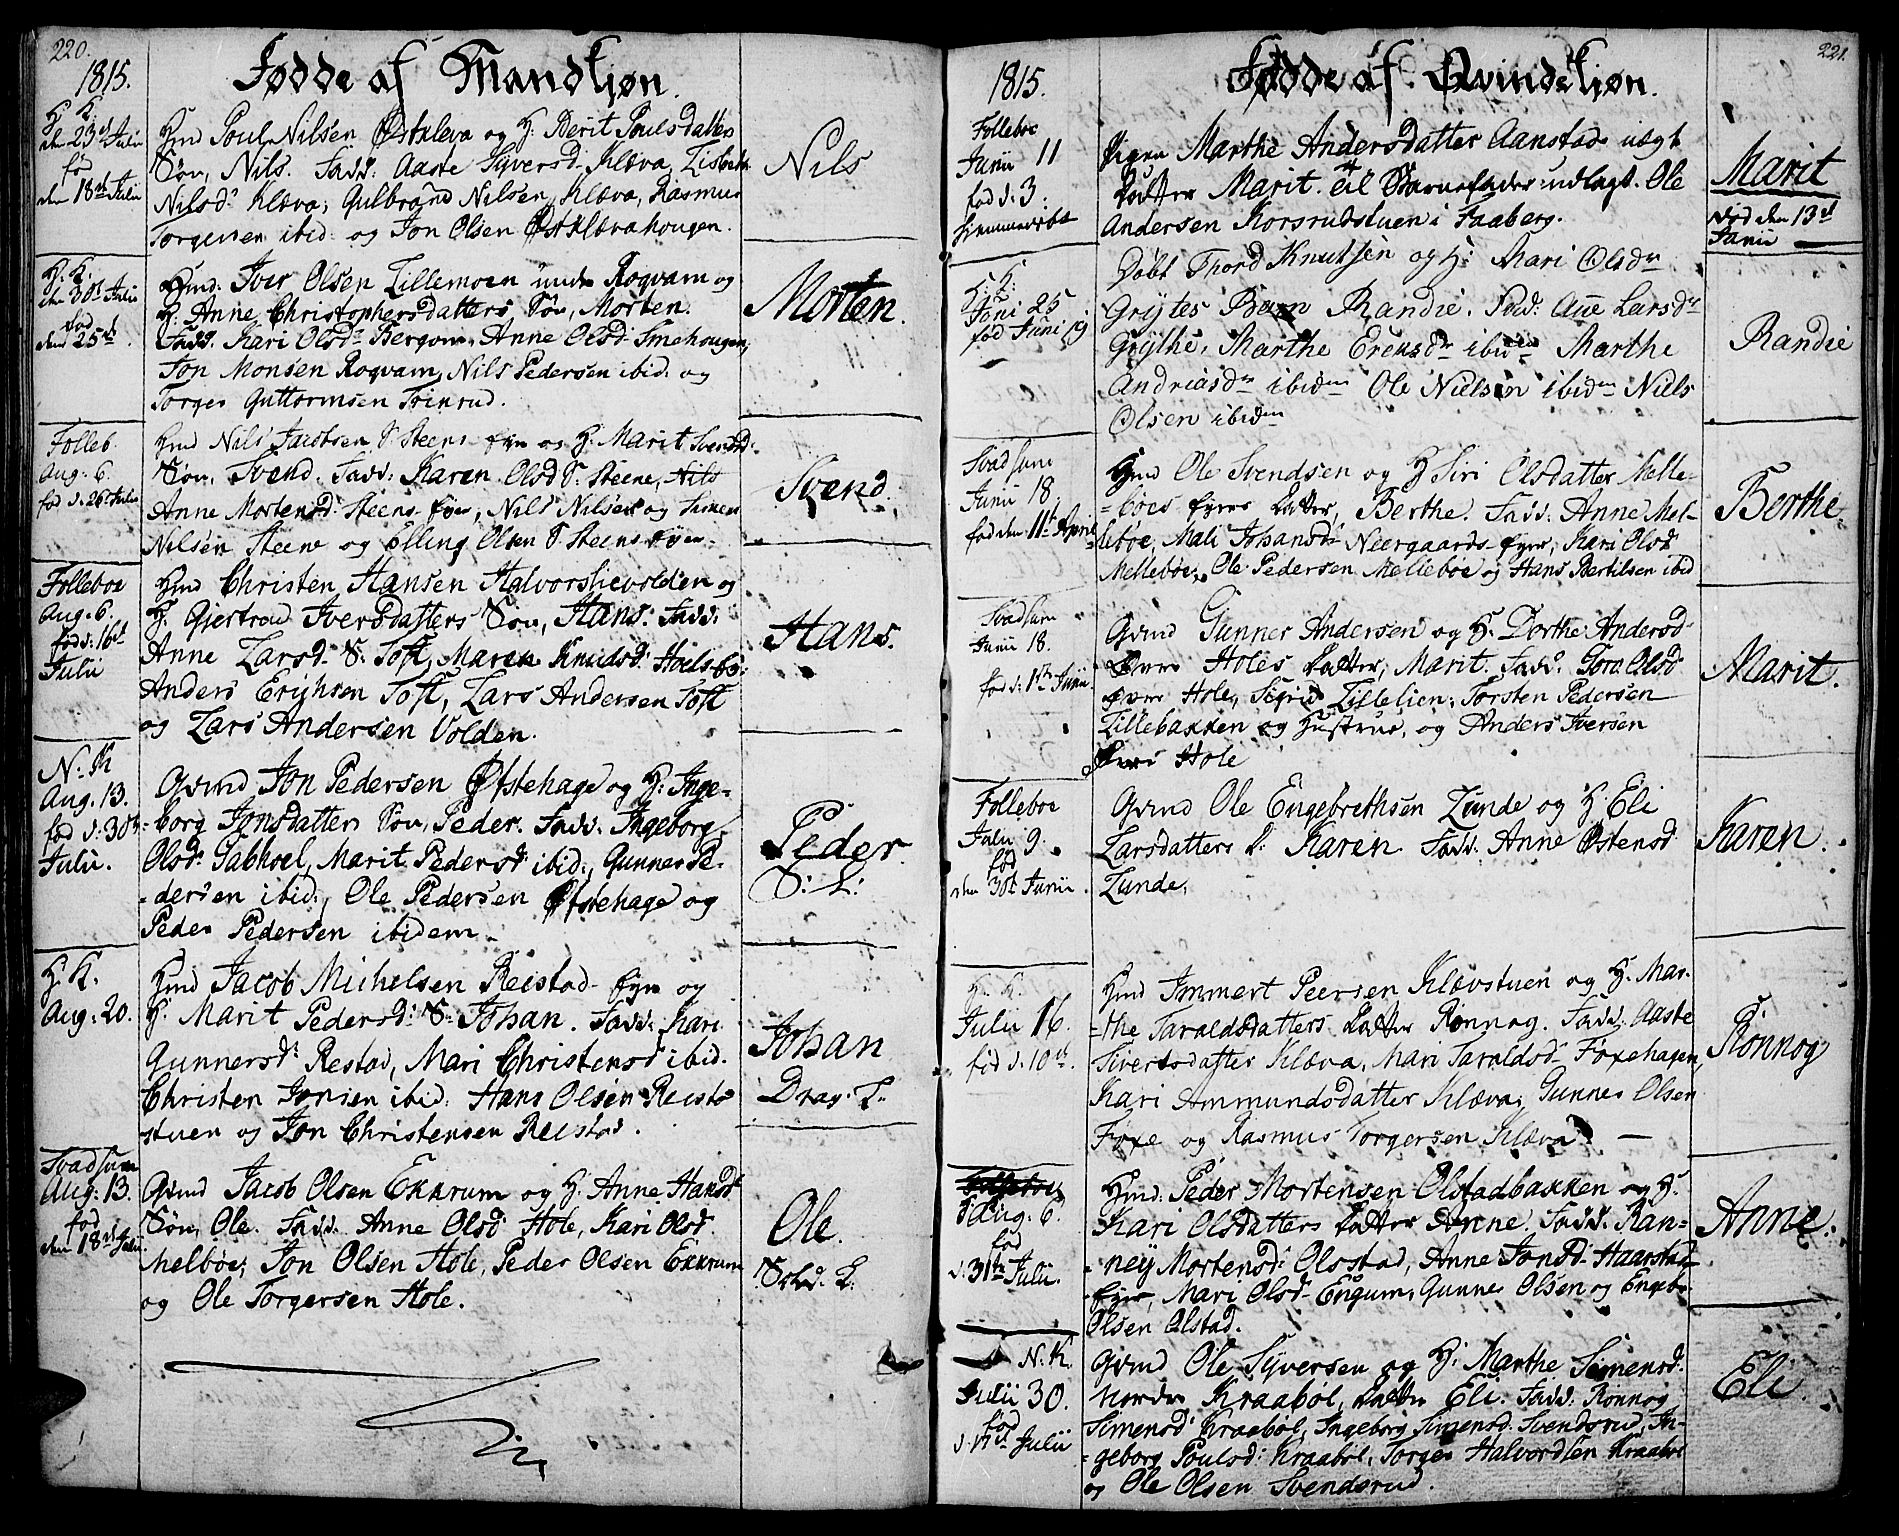 220.
1815.
Fødde af Mandkjøn.
H. K.
den 23d Julii
fød
den 18de Julii
Hmd Poul Nilsen Østkleva og H: Berit Poulsdatters
Søn, Nils. Fadd: Aaste Syversd. Klæva, Lisbeth
Nilsd: Klæva, Gulbrand Nilsen Klæva, Rasmus
Torgersen ibid: og Jon Olsen Østklævahougen.
Nils
H. K.
den 30t Julii
fød
den 25d.
Hmd: Iver Olsen Lillemoen under Roqvam og
H. Anne Christophersdatters Søn, Morten.
Fadd. Kari Olsd. Bergom, Anne Olsd. Smehougen,
Jon Monsen Roqvam, Nils Pedersen ibid: og
Torger Guttormsen Troirud.
Morten.
Folleb.
Aug: 6.
fød d. 26t Julii
Hmd Nils Jacobsen S. Steens eye og H. Marit Svensd.
Søn, Svend. Fadd: Karen Olsd S. Steene, Nils
Anne Mortensd. Steens eye, Nils Nilsen og Simen
Nilsen Steene og Elling Olsen S. Steens eye.
Svend.
Folleboe
Aug. 6.
fød d: 16d.
Julii
Hmd Christen Hansen Halvorslievolden og
H. Giertrud Iversdatters Søn, Hans. Fadd:
Anne Larsd. S. Toft, Maren Knudsd. Hoelsbø:
Anders Erichsen Toft, Lars Andersen Toft
og Lars Andersen Volden.
Hans.
N: K
Aug. 13.
fød d. 30te
Julii.
Gvmd Jon Pedersen Øfstehage og H: Inge-
-borg Jonsdatters Søn, Peder. Fadd: Ingeborg
Olsd: Gabhoel, Marit Pedersd: ibid:, Gunner Pe-
-dersen ibid:, Ole Pedersen Øfstehage og
Peder Pedersen ibidem.
Peder.
S: L:
H. K.
Aug: 20.
Hmd Jacob Michelsen Reistad- eye og
H. Marit Pedersd: S. Johan. Fadd: Kari
Gunnersd: Restad, Mari Christensd ibid.
Christen Jonsen ibid: Hans Olsen Reistad
stuen og Jon Christensen Reistad.
Johan
Drag. L.
Svadsum
Aug: 13.
fød
den 18d Julii.
Gvmd Jacob Olsen Exxrum og H. Anne Hansd.
Søn, Ole. Fadd. Anne Olsd Hole, Kari Olsd
Melbøe, Jon Olsen Hole, Peder Olsen Exxrum
og Ole Torgersen Hole.
Ole.
221.
1815.
Fødde af Qvindekjøn.
Folleboe
Junii 11
fød d. 3.
hjemmedøbt
Pigen Marthe Andersdatter Aanstads uægt
Datter Marit. til Barnefader udlagt. Ole
Andersen Korsrudstuen i Faaberg.
Marit
død den 13d
Junii
H. K:
Juni 25
fød Juni 19
Døbt Thord Knutsen og H: Mari Olsdr
Grytes Barn Randie. Fad: Ane Larsdr
Grythe, Marthe Ereksdr ibidem Marthe
Andriasdr ibidem Ole Nielsen ibidm Niels
Olsen ibidm
Randie
Svadsum
Junii 18.
fød den 11te April
Hmd Ole Svendsen og H Siri Olsdatter Melle-
-bøes eyes Datter, Berthe. Fadd: Anne Mel-
-lebøe, Mali Johansd: Neergaards- eye, Kari Olsd
Mellebøe, Ole Pedersen Mellebøe og Hans Bertilsen ibid
Berthe
Svadsum
Junii 18.
fød d: 1ste Junii
Gvmd Gunner Andersen og H. Dorthe Andersd.
Øvre Holes Datter, Marit. Fadd. Gora Olsd
øvre Hole, Sigrid Lillelien, Torsten Pedersen
Lillebakken og Hustrue, og Anders Iversen
Øvre Hole
Marit.
Folleboe
Julii 9.
fød
den 30t Junii.
Gvmd Ole Engebrethsen Lunde og H. Eli
Larsdatters D: Karen. Fadd: Anne Østensd.
Lunde.
Karen.
H. K.
Julii 16.
fød d. 10de.
Hmd Immert Peersen Klævstuen og H. Mar-
-the Taraldsdatters Datter Rønnog. Fadd: Aaste
Sivertsdatter Klæva, Mari Taraldsd. Foxehagen,
Kari Ammundsdatter Klæva, Gunner Olsen
Foxe og Rasmus Torgersen Klæva.
Rønnog
Folleboe
Aug: 6.
fød
d. 31te Julii.
Hmd: Peder Mortensen Olstadbakken og H.
Kari Olsdatters Datter Anne. Fadd: Ran-
-ney Mortensd: Olsstad, Anne Jonsd. Haarstad-
-eye, Mari Olsd. Engum, Gunner Olsen og Engebr.
Olsen Olstad.
Anne.
N. K.
Julii 30.
fød
d. 17d Julii
Gvmd Ole Syversen og H: Marthe Simensd:
Nordre Kraabøl, Datter Eli. Fadd. Rønnog
Simensd: Kraabøl, Ingeborg Simensd. Svendsrud, In-
-geborg Poulsd: Kraabøl, Torger Halvordsen Kraabøl
og Ole Olsen Svendsrud.
Eli.